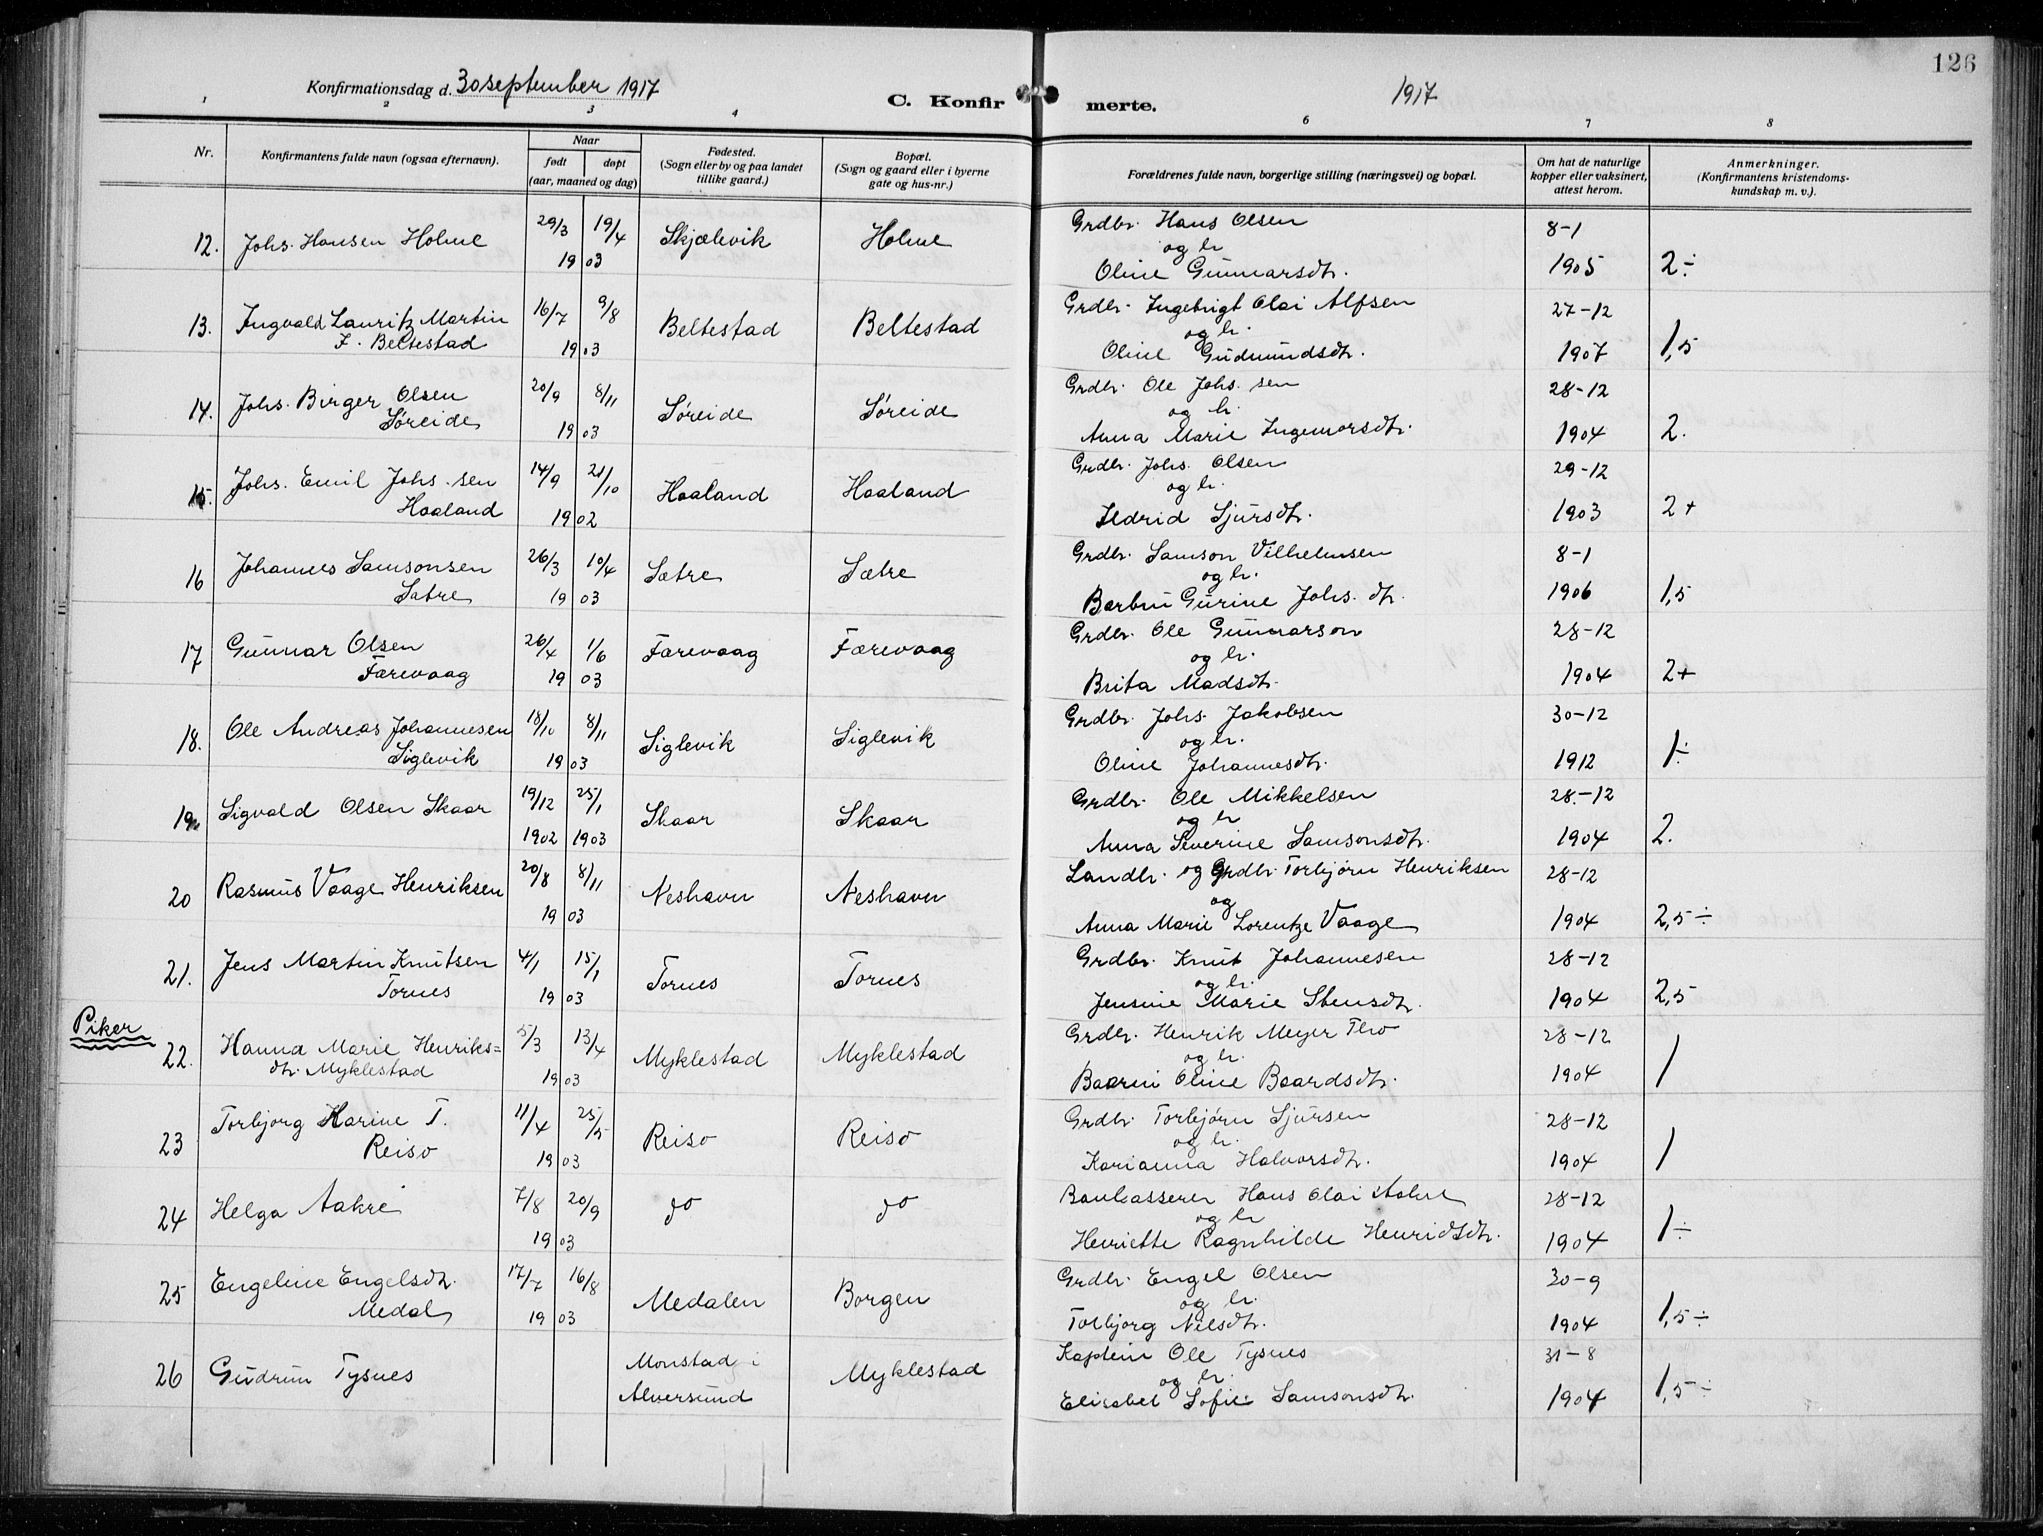 126
Konfirmationsdag d. 30 september 1917
C. Konfirmerte.
1917
1 2 3 4 6 7 8
Nr.
Konfirmantens fulde navn (ogsaa efternavn).
Naar
født døpt
(aar, maaned og dag)
Fødested.
(Sogn eller by og paa landet
tillike gaard.)
Bopæl.
(Sogn og gaard eller i byerne
gate og hus-nr.)
Forældrenes fulde navn, borgerlige stilling (næringsvei) og bopæl.
Om hat de naturlige
kopper eller vaksinert,
attest herom.
Anmerkninger.
(Konfirmantens kristendoms-
kundskap m. v.).
12. Johs. Hansen Holme 29/3 19/4 1903 Skjælevik Holme Grdbr. Hans Olsen
og h
Oline Gunnarsdtr. 8-1 1905 2÷
13. Ingvald Lauritz Martin
I. Beltestad 16/7 9/8 1903 Beltestad Beltestad Grdbr. Ingebrigt Olai Alfsen
og h.
Oline Gudmundsdtr. 27-12 1907 1,5
14. Johs. Birger Olsen
Søreide 20/9 8/11 1903 Søreide Søreide Grdbr. Ole Johs. sen
og h.
Anna Marie Ingemorsdtr. 28-12 1904 2.
15. Johs. Emil Johs. sen
Haaland 14/9 21/10 1902 Haaland Haaland Grdbr. Johs. Olsen
og h.
Ildrid Sjursdtr. 29-12 1903 2+
16 Johannes Samsonsen
Sætre 26/3 10/4 1903 Sætre Sætre Grdbr. Samson Vilhelmsen
og h.
Barbru Gurine Johs. dtr. 8-1 1906 1,5
17 Gunnar Olsen
Færevaag 26/4 1/6 1903 Færevaag Færevaag Grdbr. Ole Gunnarson
og h.
Brita Madsdtr. 28-12 1904 2+
18. Ole Andreas Johannesen
Siglevik 18/10 8/11 1903 Siglevik Siglevik Grdbr. Johs. Jakobsen
og h.
Oline Johannesdtr. 30-12 1912 1÷
19. Sigvald Olsen Skaar 19/12 25/1 1902 1903 Skaar Skaar Grdbr. Ole Mikkelsen
og h
Anna Severine Samsonsdtr. 28.-12 1904 2.
20 Rasmus Vaage Henriksen 20/8 8/11 1903 Neshavn Neshavn Landh. og Grdbr. Torbjørn Henriksen
og
Anna Marie Lorentze Vaage 28-12 1904 2,5÷
21. Jens Martin Knutsen
Tornes 4/1 15/1 1903 Tornes Tornes Grdbr. Knut Johannesen
og h.
Jensine Marie Stensdtr. 28-12 1904 2,5
Piker
22. Hanna Marie Henriks=
dtr. Myklestad 5/3 13/4 1903 Myklestad Myklestad Grdbr. Henrik Meyer Tho
og h.
Baarni Oline Baardsdtr. 28-12 1904 1
23 Torbjorg Karine T.
Reiso 11/4 25/5 1903 Reiso Reiso Grdbr. Torbjørn Sjursen
og h.
Karianna Halvorsdtr. 28-12 1904 1
24 Helga Aakre 7/8 20/9 1903 do do Bankasserer Hans Olai Aakre
og h
Henriette Ragnhilde Henridsdtr. 28-12 1904 1÷
25 Engeline Engelsdtr.
Medal 17/7 16/8 1903 Medalen Borgen Grdbr. Engel Olsen
og h.
Torbjorg Nilsdtr. 30-9 1904 1,5÷
26 Gudrun Tysnes Monstad i
Alversund Myklestad Kaptein Ole Tysnes
og h.
Elisabet Sofie Samsonsdtr. 31-8 1904 1,5÷